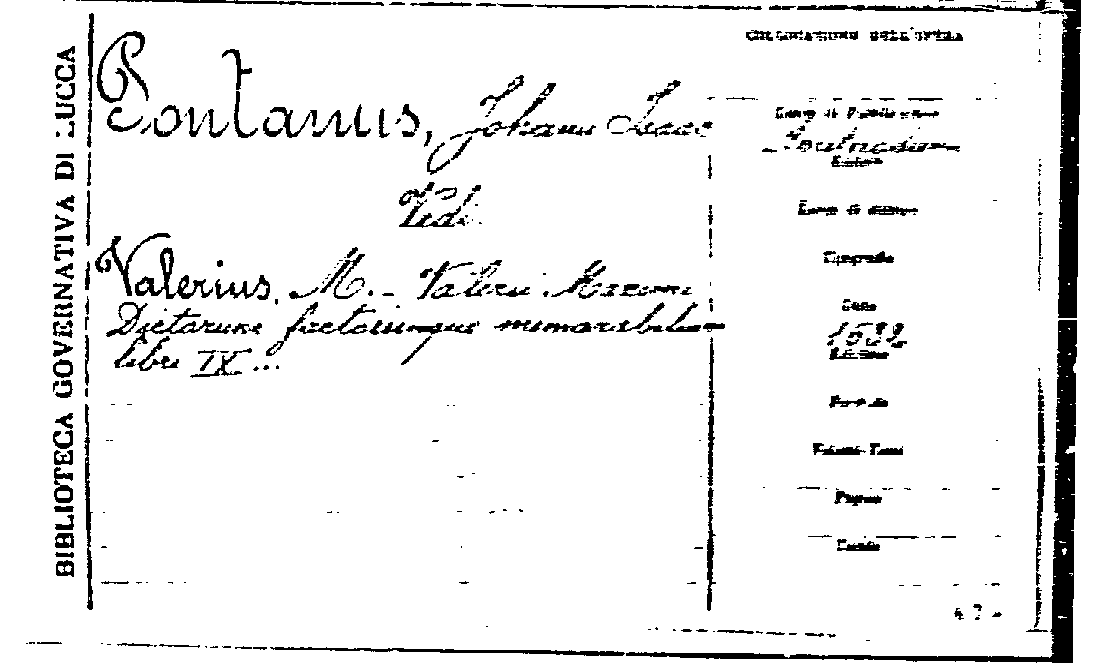 BIBLIOTECA GOVERNATIVA DI LUCCA
Pontanus, Johann Isaac
Vedi
Valerius, M. - Valerii Maximi
Dictorum factorumque memorabilium
libri IX...
COLLOCAZIONE DELL'OPERA
Luogo di Pubblicazione
Editore
Luogo di stampa
Tipografia
Data
Edizione
Formato
Volumi-Tomi
Pagine